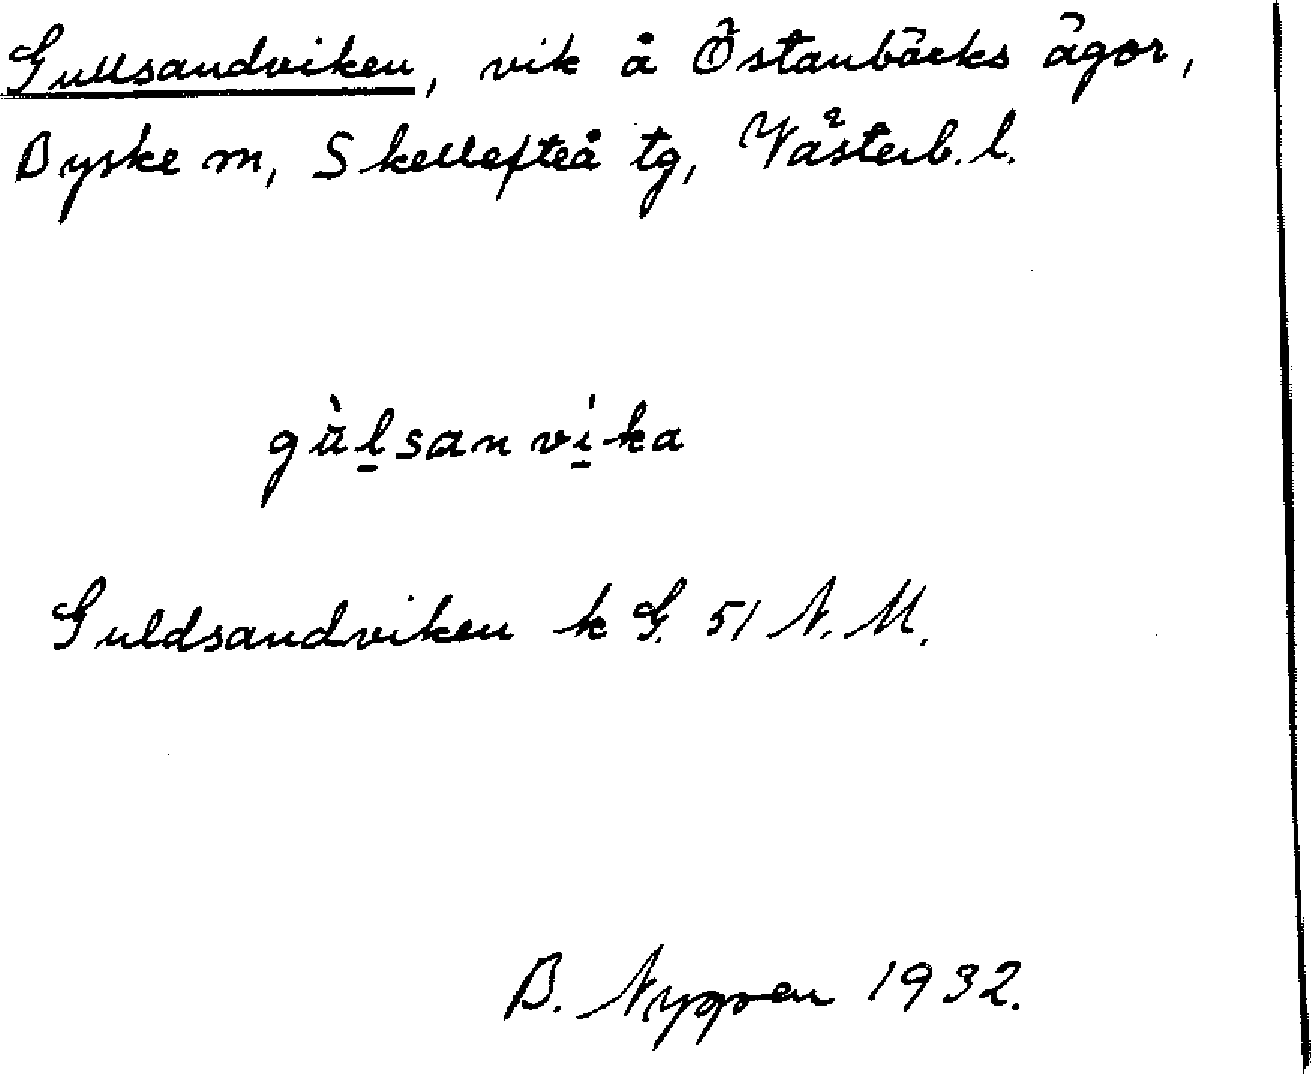 Gullsandviken, vik å Östanbäcks ägor,
Byske sn, Skellefteå tg, Västerb. l.
gùl̲sanvi̲ka
Guldsandviken k G. 51 N. M.
B. 1932.